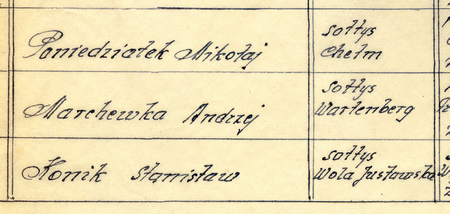 Poniedziałek Mikołaj
sołtys
Chełm
Marchewka Andrzej
sołtys
Wartenberg
Konik Stanisław
sołtys
Wola Justowska